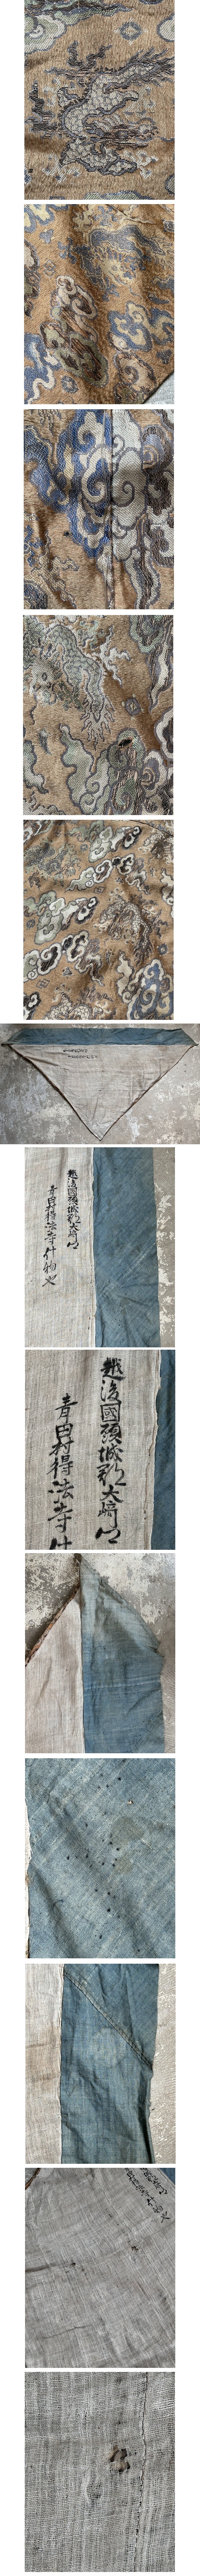 越後國頸城郡大崎山
青田村得法寺什物也
越後國頸城郡大崎山
青田村得法寺什